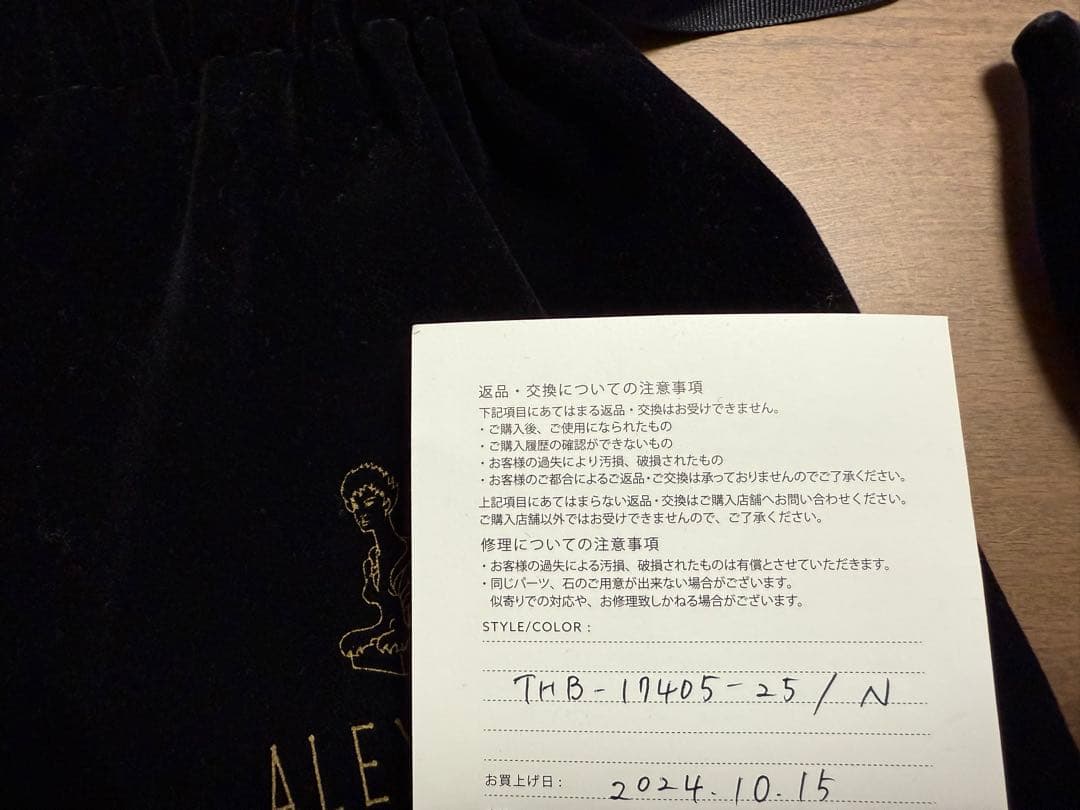 返品・交換についての注意事項
下記項目にあてはまる返品・交換はお受けできません。
・ご購入後、ご使用になられたもの
・ご購入履歴の確認ができないもの
・お客様の過失により汚損、破損されたもの
・お客様のご都合によるご返品・ご交換は承っておりませんのでご了承ください。
上記項目にあてはまらない返品・交換はご購入店舗へお問い合わせください。
ご購入店舗以外ではお受けできませんので、ご了承ください。
修理についての注意事項
・お客様の過失による汚損、破損されたものは有償とさせていただきます。
・同じパーツ、石のご用意が出来ない場合がございます。
似寄りでの対応や、お修理致しかねる場合がございます。
STYLE/COLOR :
THB-17405-25/N
お買上げ日 : 2024.10.15
ALE